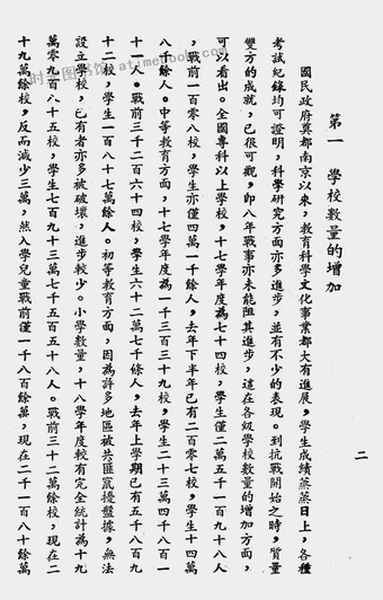 第一　學校數量的增加
國民政府奠都南京以來，教育科學文化事業都大有進展，學生成績蒸蒸日上，各種
考試紀錄均可證明，科學研究方面亦多進步，並有不少的表現。到抗戰開始之時，質量
雙方的成就，已很可觀，即八年戰事亦未能阻其進步，這在各級學校數量的增加方面，
可以看出。全國專科以上學校，十七學年度為七十四校，學生僅二萬五千一百九十八人
，戰前一百零八校，學生亦僅四萬一千餘人，去年下半年已有二百零七校，學生十四萬
八千餘人。中等教育方面，十七學年度為一千三百三十九校，學生二十三萬四千八百一
十一人。戰前三千二百六十四校，學生六十二萬七千條人，去年上學期已有五千八百九
十二校，學生一百八十七萬餘人。初等教育方面，因為許多地區被共匪竄擾盤據，無法
設立學校，已有者亦多被破壞，進步較少。小學數量，十八學年度較有完全統計為十九
萬零九百八十五校，學生七百九十三萬七千五百五十八人。戰前三十二萬餘校，現在二
十九萬餘校，反而減少三萬，然入學兒童戰前僅一千八百餘萬，現在二千一百八十餘萬
二
时光图书馆 atimebook.com